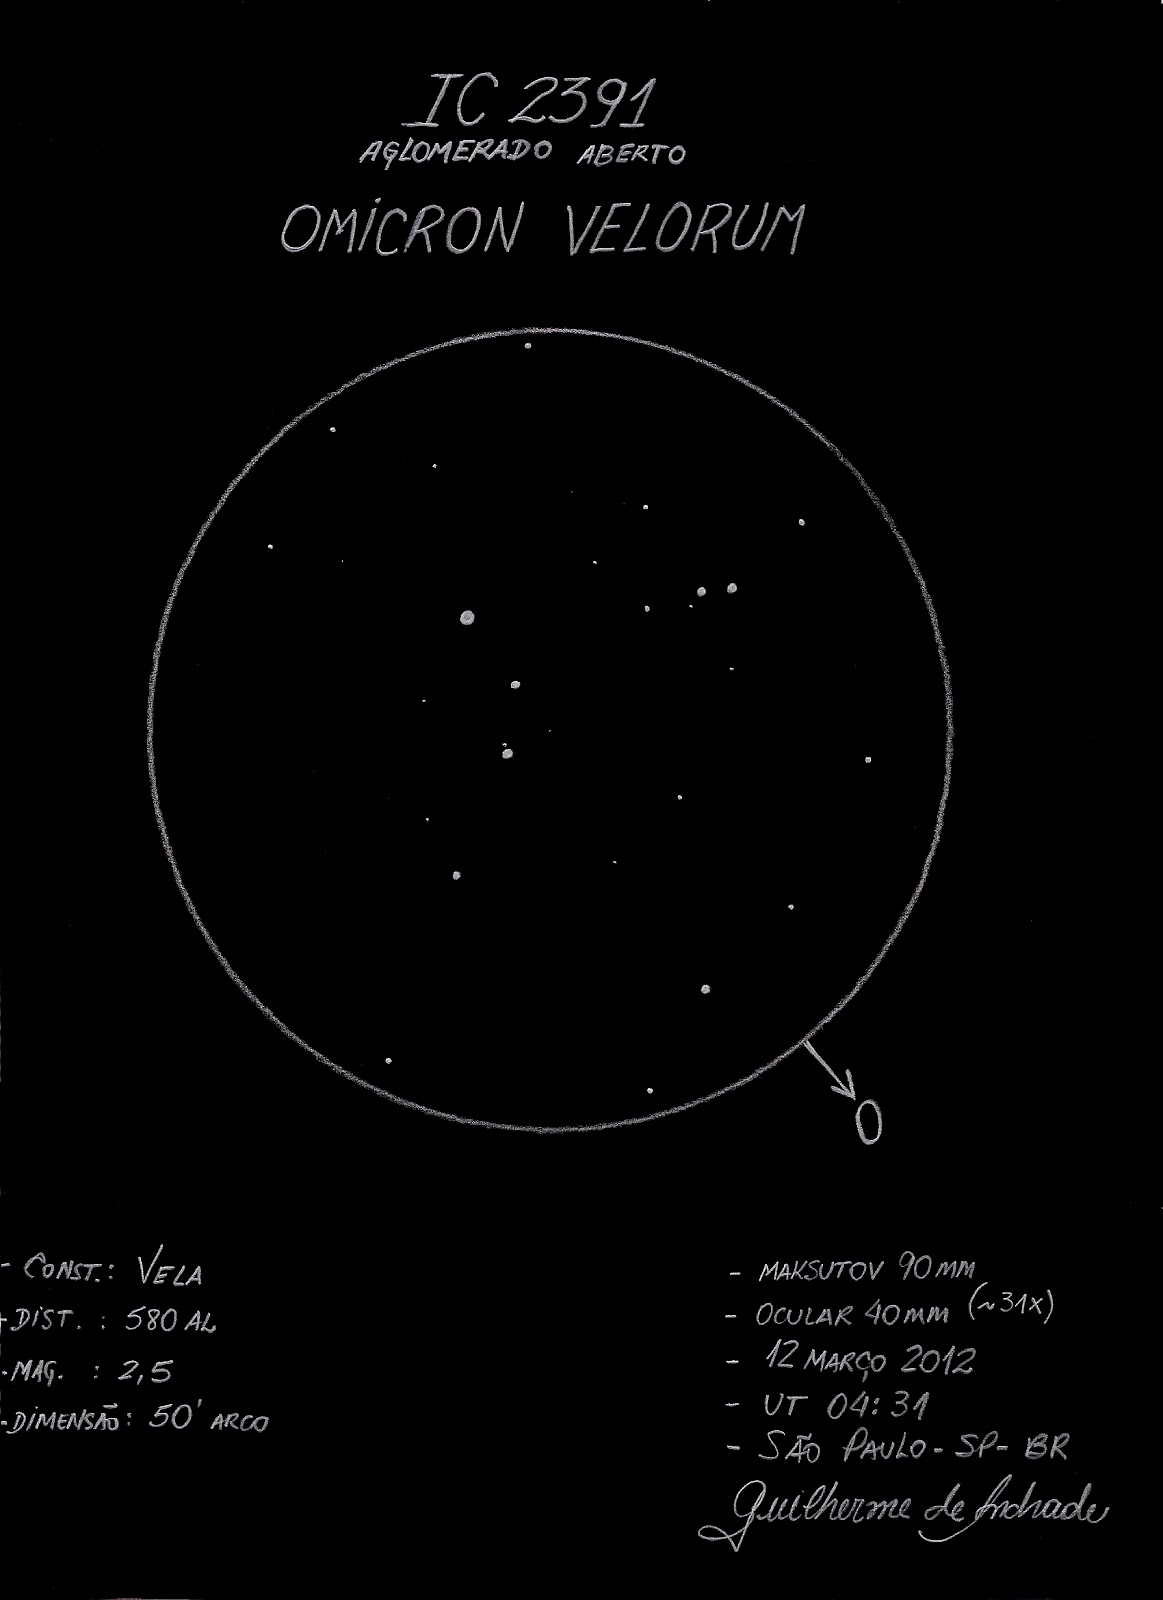 IC 2391
AGLOMERADO ABERTO
OMICRON VELORUM
O
- CONST.: VELA
- DIST. : 580 AL
- MAG. : 2,5
- DIMENSÃO: 50' ARCO
- MAKSUTOV 90MM
- OCULAR 40MM (~31X)
- 12 MARÇO 2012
- UT 04:31
- SÃO PAULO - SP - BR
Guilherme de Andrade